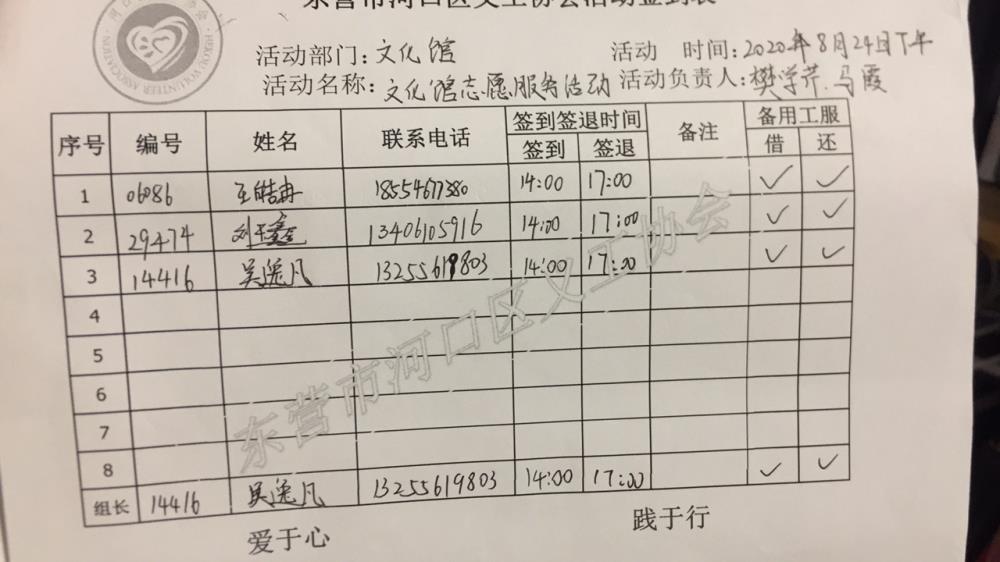 东营市河口区义工协会活动签到表
HEKOU VOLUNTEER ASSOCIATION
活动部门:文化馆 活动 时间:2020年8月24日下午
活动名称:文化馆志愿服务活动 活动负责人:樊学芹.马霞
序号 编号 姓名 联系电话 签到签退时间 备注 备用工服
签到 签退 借 还
1 06086 王皓冉 18554677380 14:00 17:00 ✓ ✓
2 29474 刘 鑫 13406105916 14:00 17:00 ✓ ✓
3 14416 吴逸凡 13255619803 14:00 17:00 ✓ ✓
4
5
6
7
8
组长 14416 吴逸凡 13255619803 14:00 17:00 ✓ ✓
东营市河口区义工协会
爱于心 践于行